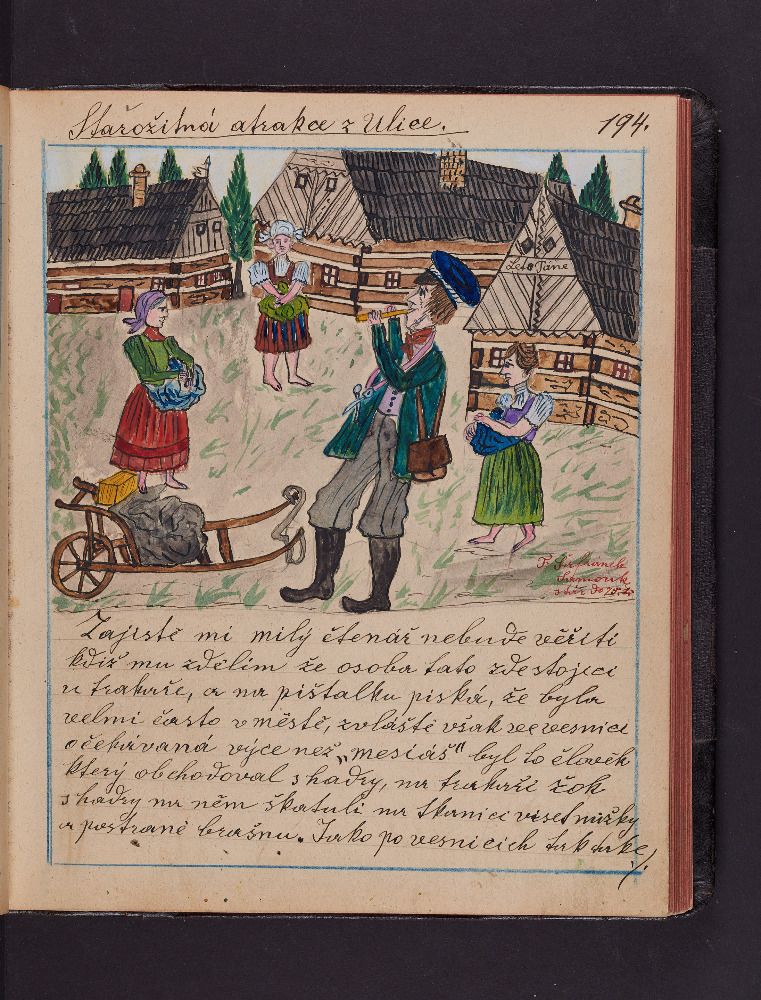 Stařožitná atrakce z Ulice.
194.
Léto Páně
Zajisté mi milý čtenář nebude věřiti
když mu zdělím že osoba tato zde stojící
u trakaře, a na pištalku píská, že byla
velmi často v městě, zvláště však ve vesnici
očekávaná výce než „mesiáš" byl to člověk
který obchodoval s hadry, na trakaři žok
s hadry na něm škatuli na tkanici viset nužky
a postraně brašnu. Jako po vesnicích tak také
./.